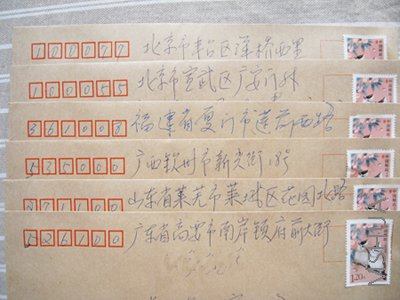 100077 北京市丰台区洋桥西里
100055 北京市宣武区广安门外
361008 福建省厦门市莲前西路
535000 广西钦州市新兴街18号
271100 山东省莱芜市莱城区花园北路
526100 广东省高要市南岸镇府前大街
1.20元